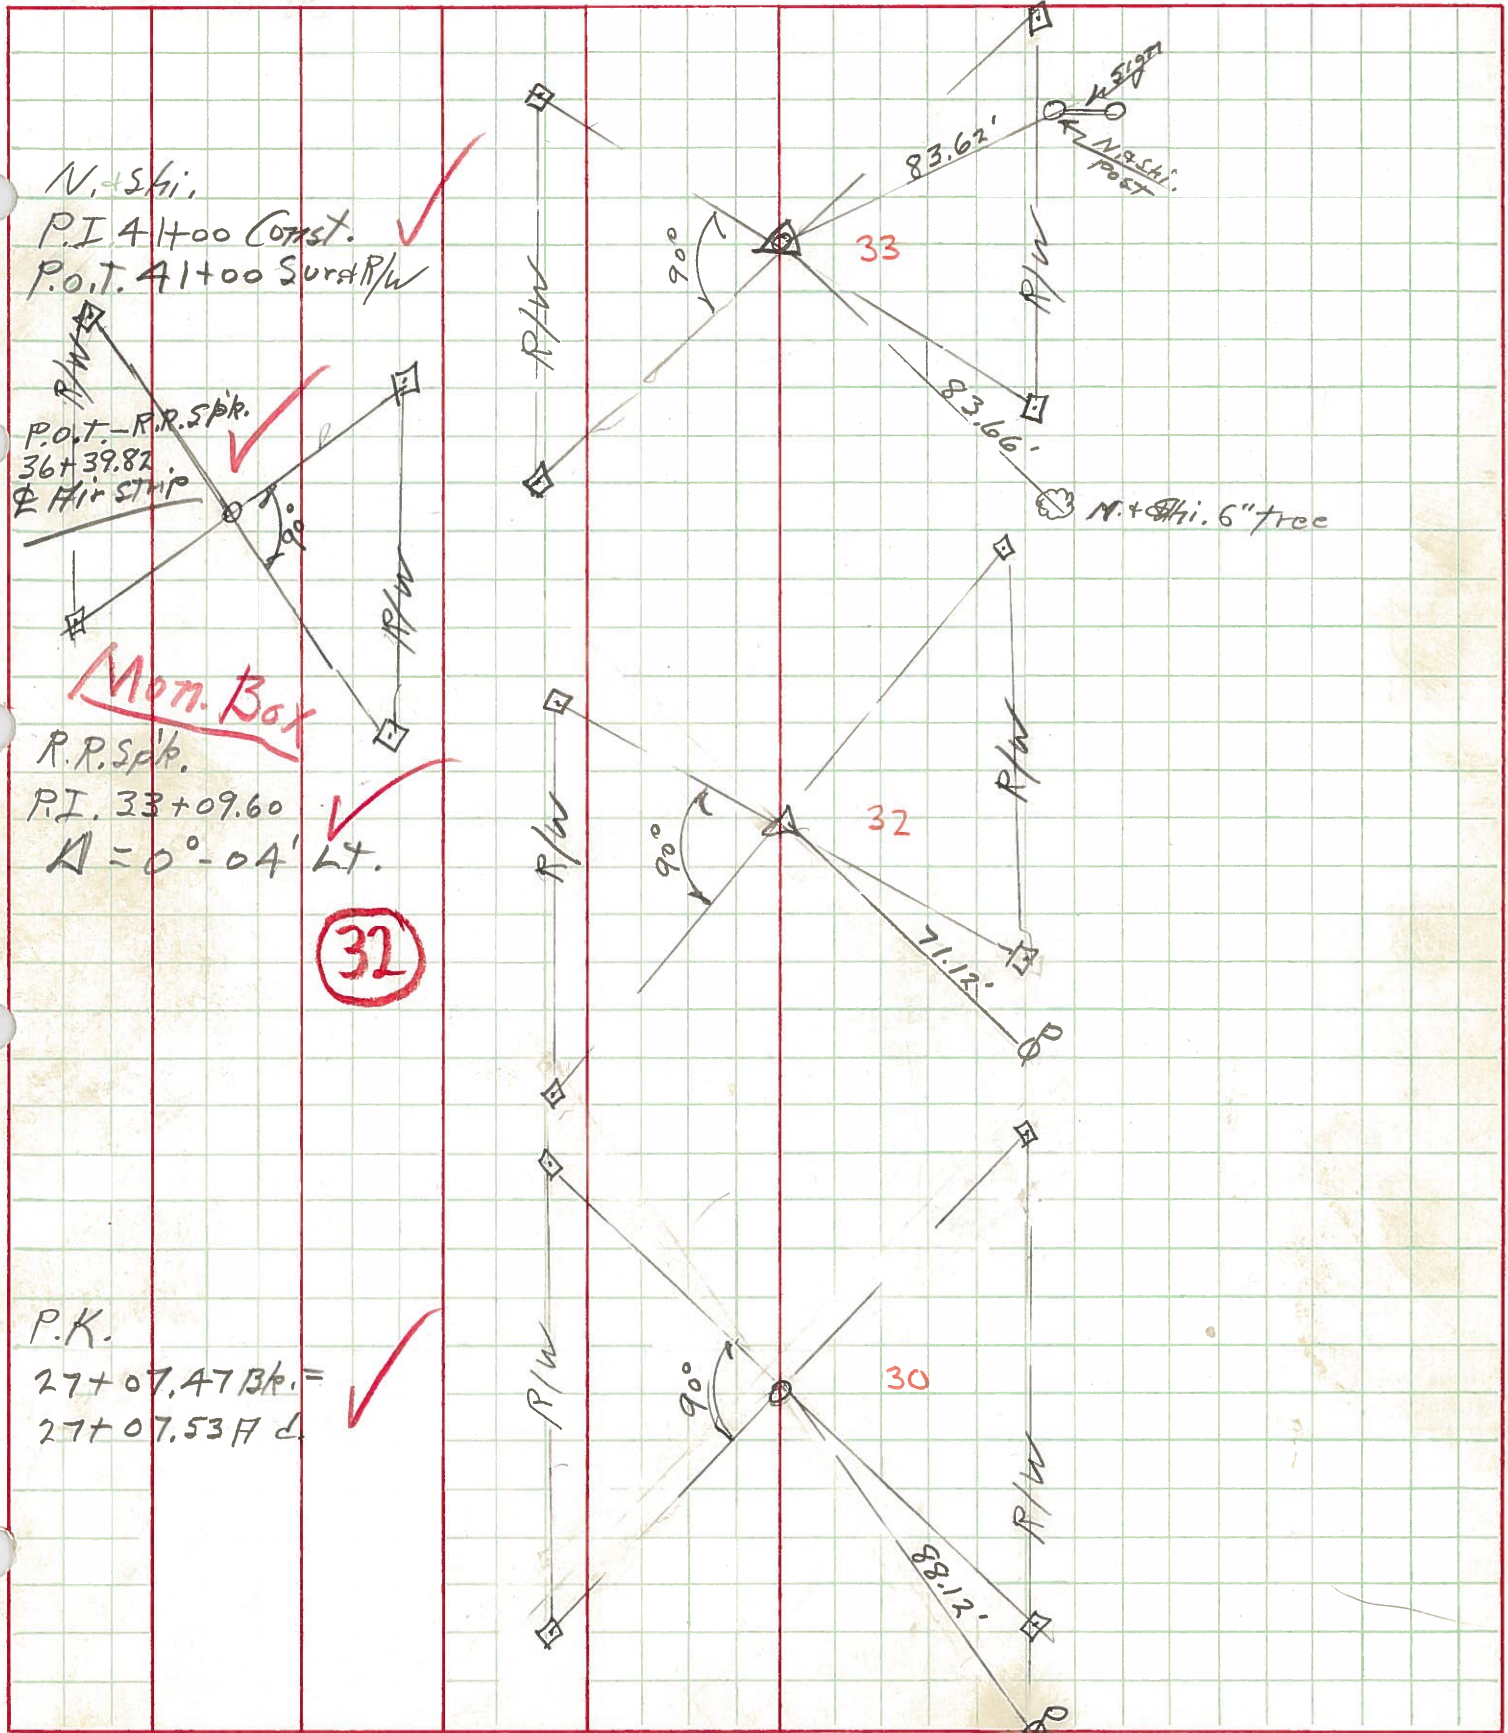 N. & Shi.
P.I 41+00 Const.
P.O.T. 41+00 Sur & R/W
R/W
P.O.T. - R.R. Spk.
36+39.82
℄ Air Strip
90°
R/W
Mon. Box
R.R. Spk.
P.I. 33+09.60
Δ = 0°-04' Lt.
32
P.K.
27+07.47 Bk. =
27+07.53 A d.
R/W
90°
33
83.62'
Sign
N. & Shi.
Post
R/W
83.66'
N. + Shi. 6" tree
R/W
90°
32
R/W
71.12'
R/W
90°
30
R/W
88.12'